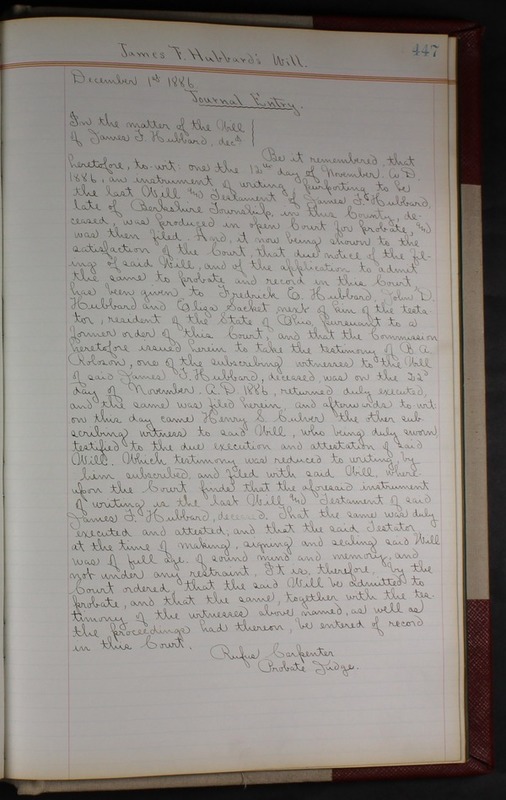 447
James F. Hubbard's Will.
December 1st 1886.
Journal Entry.
In the matter of the Will
of James F. Hubbard, decd.
Be it remembered, that
heretofore, to-wit: one the 12th day of November. A.D.
1886, an instrument of writing, purporting to be
the last Will and Testament of James F. Hubbard,
late of Berkshire Township, in this County, de-
ceased, was produced in open Court for probate, and
was then filed. And, it now being shown to the
satisfaction of the Court, that due notice of the fil-
ing of said Will, and of the application to admit
the same to probate and record in this Court,
has been given to Fredrick E. Hubbard, John D.
Hubbard and Eliza Sacket next of kin of the testa-
tor, resident of the State of Ohio, pursuant to a
former order of this Court, and that the Commission
heretofore issued herein to take the testimony of B. A.
Robson, one of the subscribing witnesses to the Will
of said James F. Hubbard, deceased, was on the 22d
day of November. A.D. 1886, returned duly executed,
and the same was filed herein, and afterwards to-wit
on this day came Henry S. Culver the other sub-
scribing witness to said Will, who being duly sworn
testified to the due execution and attestation of said
Will. Which testimony was reduced to writing, by
him subscribed, and filed with said Will, where-
upon the Court finds that the aforesaid instrument
of writing is the last Will and Testament of said
James F. Hubbard, deceased. That the same was duly
executed and attested, and that the said Testator
at the time of making, signing and sealing said Will
was of full age, of sound mind and memory, and
not under any restraint. It is, therefore, by the
Court ordered that the said Will be admitted to
probate, and that the same, together with the tes-
timony of the witnesses above named, as well as
the proceedings had thereon, be entered of record
in this Court.
Rufus Carpenter
Probate Judge.